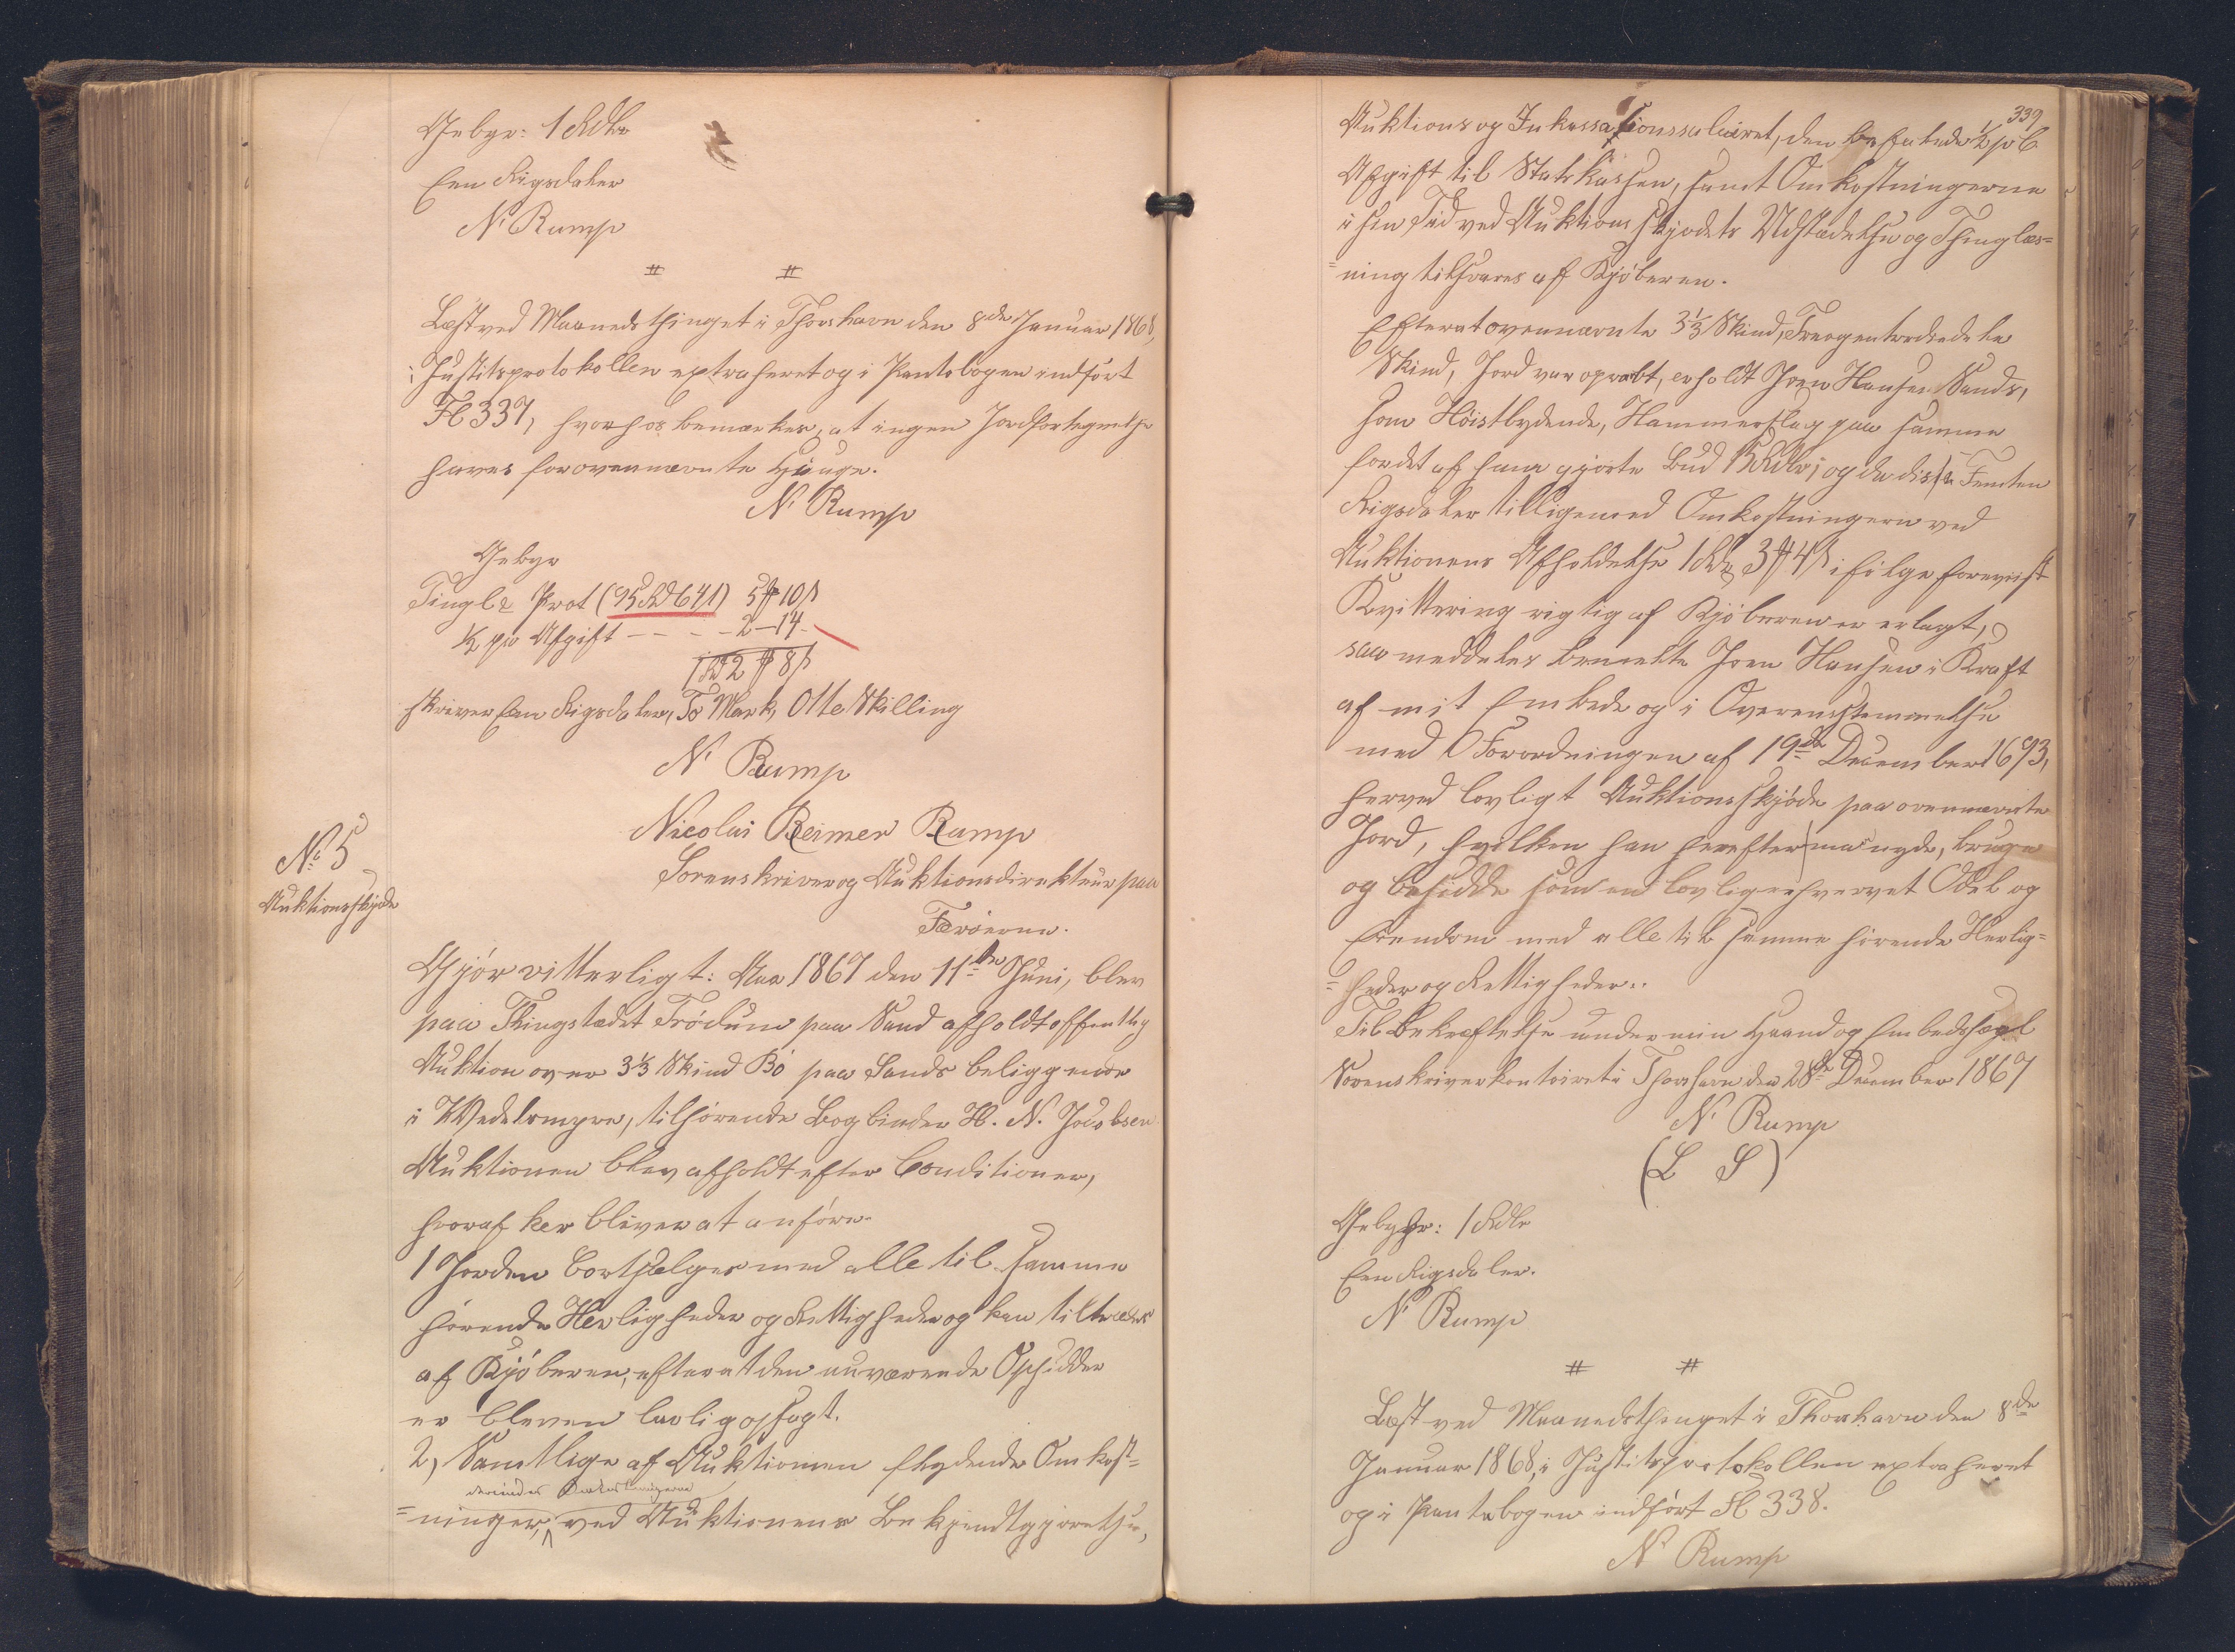 Gebyr: 1 Rdlr
Een Rigsdaler
N. Rump
# #
Læst ved Maanedsthinget i Thorshavn den 8de Januar 1868,
i Justitsprotokollen extraheret og i Pantebogen indført
Fl 337, hvorhos bemærkes, at ingen Jordfortegnelse
haves for ovennævnte Huuge.
N. Rump
Gebyr
Tingl & Prot (95 Rd 64 ß) 5 ℔ 10 ß
½ pc Afgift - - - - 2 - 14 -
1 Rd 2 ℔ 8 ß
skriver Een Rigsdaler, To Mark, Otte Skilling
N. Rump
No 5
Auktionsskjøde
Nicolai Reimer Rump
Sorenskriver og Auktionsdirekteur paa
Færøerne.
Gjør vitterligt: Aar 1867 den 11te Juni, blev
paa Thingstedet Trødum paa Sand afholdt offentlig
Auktion over 3⅓ Skind Bø paa Sands beliggende
i tilhørende Bogbinder H. N. Jacobsen
Auktionen blev afholdt efter Conditioner,
hvoraf her bliver at anføre.
1 Jorden bortsælges med alle til samme
hørende Herligheder og Rettigheder og kan tiltrædes
af Kjøberen, efterat den nuværende Opsidder
er bleven lovlig opsagt.
2, Samtlige af Auktionen flydende Omkost=
derunder Omkostningerne
=ninger, ved Auktionens Bekjendtgjørelse,
339
Auktions og Inkassationssalairet, den befalede ½ pC.
Afgift til Statskassen, samt Omkostningerne
i sin Tid ved Auktionsskjødets Udstædelse og Thinglæs=
=ning tilsvares af Kjøberen.
Efterat ovennævnte 3⅓ Skind, Tre og en trediedele
Skind, Jord var opraabt, erholdt Joen Hansen Sands,
som Høistbydende, Hammerslag paa samme
for det af ham gjorte Bud 15 Rdlr; og da disse Femten
Rigsdaler tilligemed Omkostningerne ved
Auktionens Afholdelse 1 Rd 3 ℔ 4 ß ifølge foreviist
Kvittering rigtig af Kjøberen er erlagt,
saa meddeles bemeldte Joen Hansen i Kraft
af mit Embede og i Overensstemmelse
med Forordningen af 19de December 1693,
herved lovligt Auktionsskjøde paa ovennævnte
Jord, hvilken han herefter maa nyde, bruge
og besidde som en lovlig erhvervet Odel og
Eiendom med alle til samme hørende Herlig=
=heder og Rettigheder.
Til Bekræftelse under min Haand og Embedssegl
Sorenskriverkontoiret i Thorshavn den 28de December 1867
N. Rump
(L S)
Gebyhr: 1 Rdlr
Een Rigsdaler.
N. Rump
# #
Læst ved Maanedsthinget i Thorshavn den 8de
Januar 1868, i Justitsprotokollen extraheret
og i Pantebogen indført Fl 338.
N. Rump